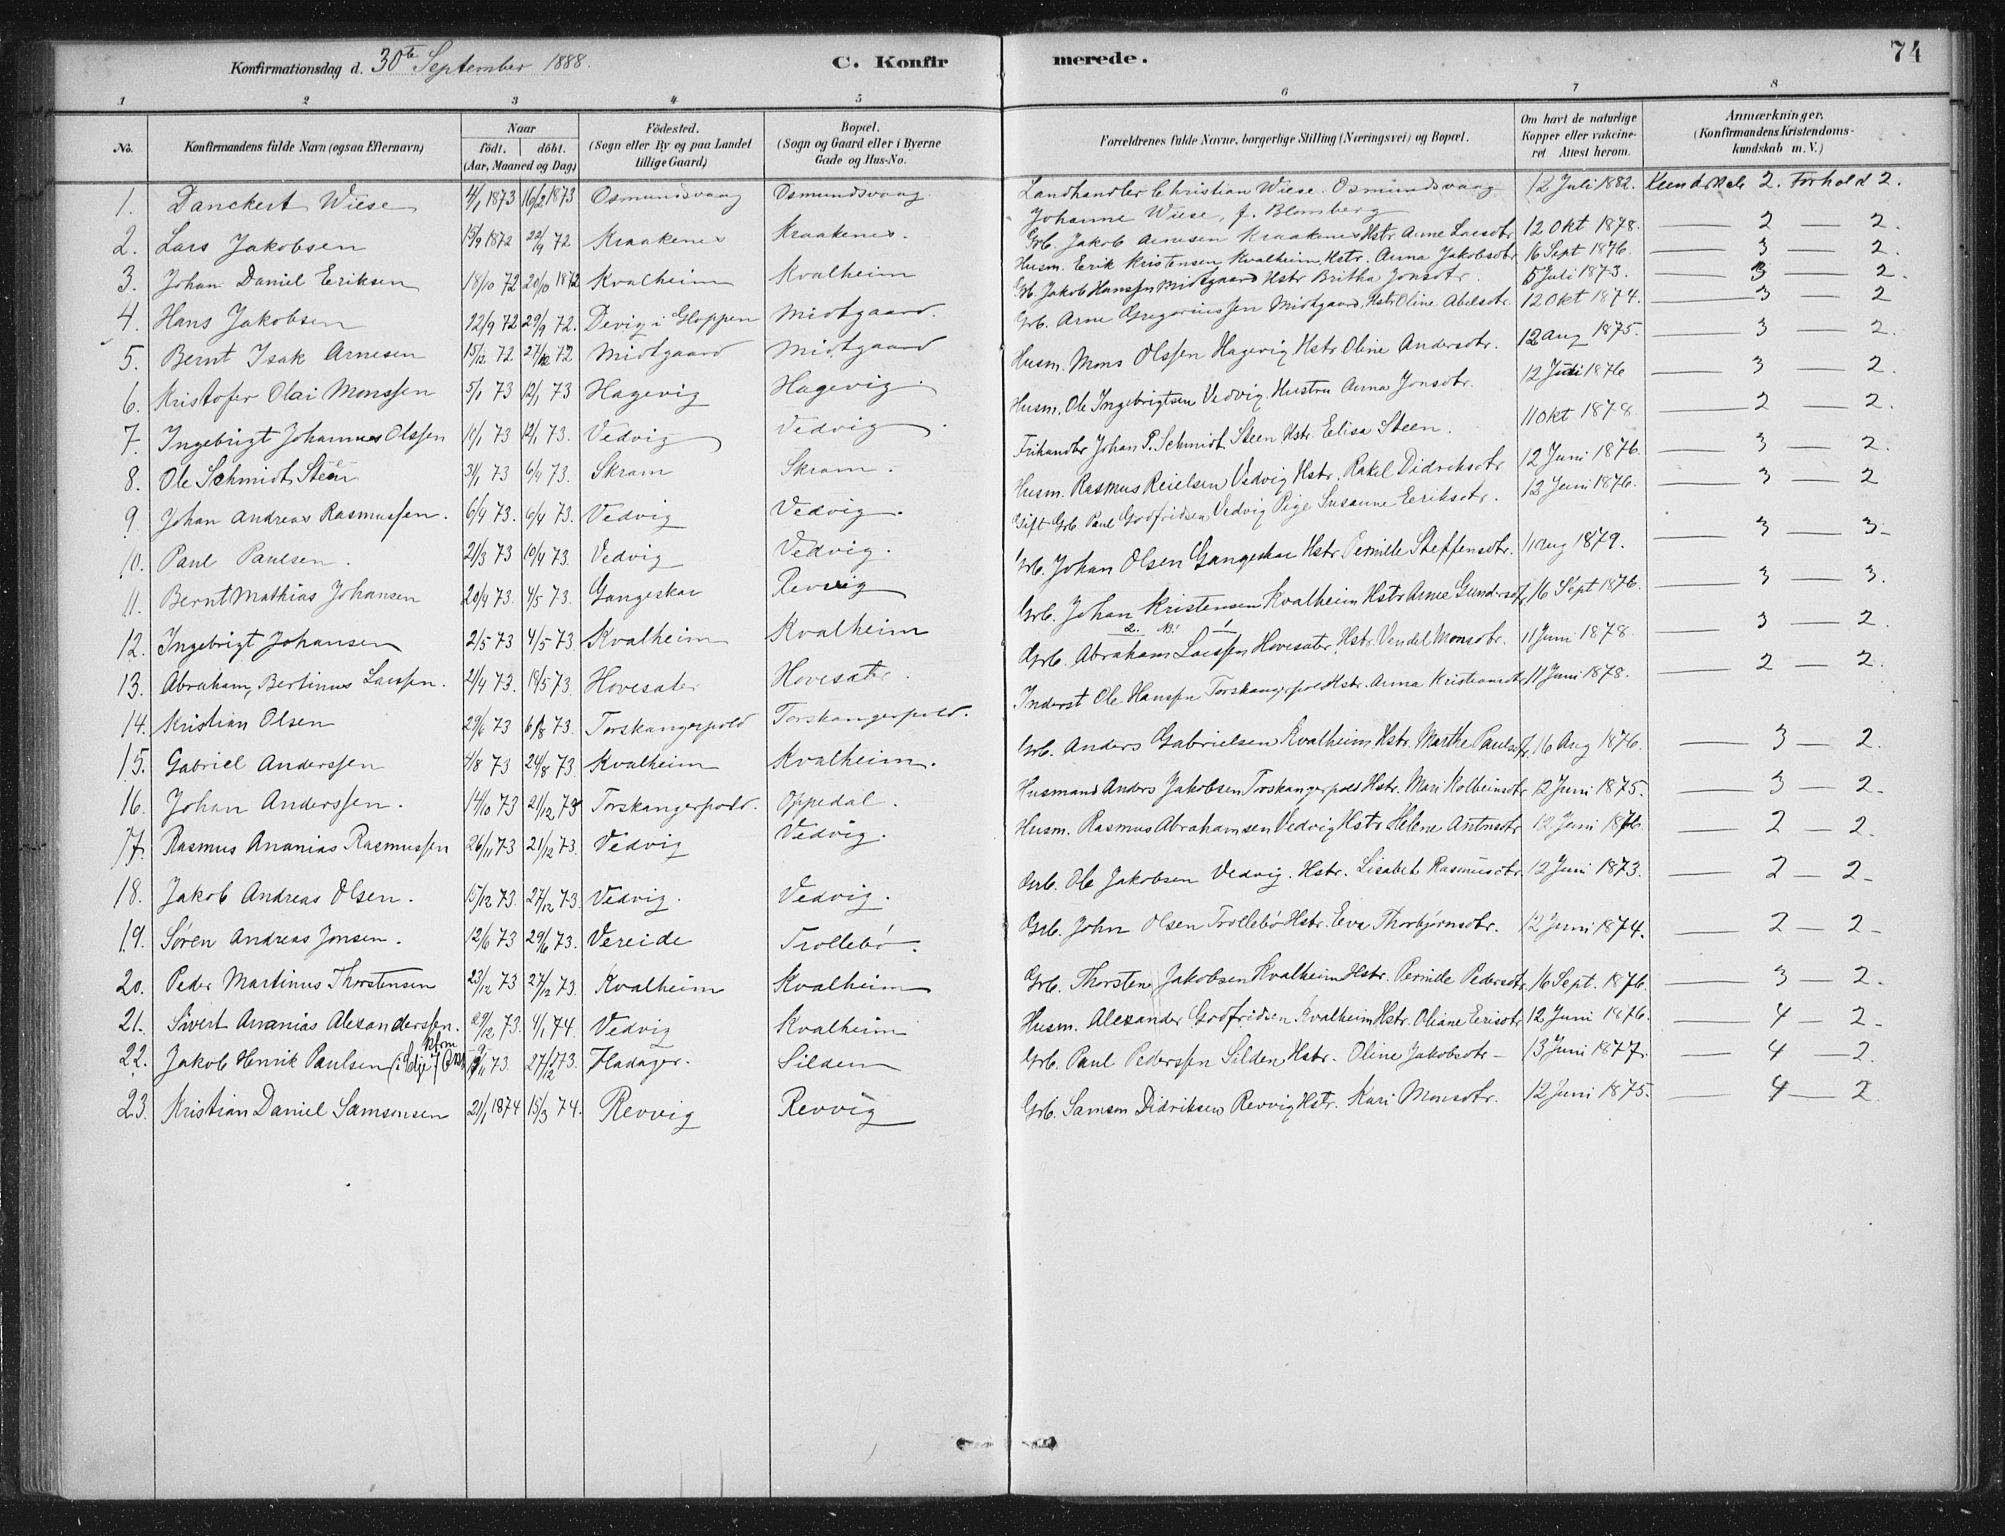 Konfirmationsdag d. 30te September 1888. C. Konfirmerede. 74
1 2 3 4 5 6 7 8
No. Konfirmandens fulde Navn (ogsaa Efternavn) Naar født. døbt. (Aar, Maaned og Dag) Fødested. (Sogn eller By og paa Landet tillige Gaard) Bopæl. (Sogn og Gaard eller i Byerne Gade og Hus-No. Forældrenes fulde Navne, borgerlige Stilling (Næringsvei) og Bopæl. Om havt de naturlige Kopper eller vakcineret. Attest herom. Anmærkninger. (Konfirmandens Kristendomskundskab m. V.)
1. Danckert Wiese 4/1 1873 16/2 1873 Osmundsvaag Osmundsvaag Landhandler Christian Wiese. Osmundsvaag Johanne Wiese, f. Blomberg 12 Juli 1882. Kundskab 2. Forhold 2.
2. Lars Jakobsen 15/9 1872 22/9 72 Kraakenes Kraakenes. Grb. Jakob Arnesen Kraakenes Hstr. Anne Larsdtr. 12 Okt 1878. 2 2.
3. Johan Daniel Eriksen 18/10 72 20/10 1872 Kvalheim Kvalheim Husm. Erik Kristensen Kvalheim, Hstr. Anna Jakobsdtr 16 Sept 1876. 3 2.
4. Hans Jakobsen 22/9 72 29/9 72. Devig i Gloppen Midtgaard. Grb. Jakob Hanssen Midtgaard Hstr Britha Jonsdtr. 5 Juli 1873. 3 2.
5. Bernt Isak Arnesen 15/12 72 27/12 72 Midtgaard Midtgaard Grb. Arne Gregoriussen Midtgaard, Hstr Oline Abelsdtr. 12 Okt 1874. 3 2
6. Kristofer Olai Monssen 5/1 73 12/1 73 Hagevig Hagevig. Husm. Mons Olssen Hagevig Hstr Oline Andersdtr. 12 Aug 1875. 3 2.
7. Ingebrigt Johannes Olssen 11/1 73 12/1 73. Vedvig Vedvig. Husm. Ole Ingebrigtsen Vedvig. Hustru Anna Jonsdtr. 12 Juli 1876 3 2.
8. Ole Schmidt Steen 31/1 73 6/4 73. Skram Skram. Frihandler Johan P. Schmidt Steen Hstr. Elisa Steen. 11 Okt 1878. 2 2.
9. Johan Andreas Rasmussen. 6/4 73. 6/4 73. Vedvig Vedvig. Husm. Rasmus Reielsen Vedvig Hstr. Rakel Didriksdtr 12 Juni 1876. 3 2.
10. Paul Paulsen. 21/3 73 10/4 73. Vedvig Vedvig. Gift Grb. Paul Godfridsen Vedvig Pige Susanne Eriksdtr. 12 Juni 1876. 3 2
11. Bernt Mathias Johansen 20/4 73. 4/5 73. Gangeskar Revvig Grb. Johan Olsen Gangeskar Hstr. Pernille Steffensdtr. 11 Aug 1879. 3 3.
12. Ingebrigt Johansen 2/5 73 4/5 73. Kvalheim Kvalheim Grb. Johan Kristensen Kvalheim Hstr Anne Gundersdtr 16 Sept 1876. 3 3.
13. Abraham Bertinus Larssen. 21/4 73. 18/5 73. Hovesæter Hovesæter. Grb. Abraham Larssen Hovesæter, Hstr. Vendel Monsdtr. 11 Juni 1878. 3 2.
14. Kristian Olsen 29/6 73 6/8 73. Torskangerpold Torskangerpold. Inderst Ole Hanssen Torskangerpold Hstr. Anna Kristiansdtr. 11 Juni 1878. 2 2.
15. Gabriel Anderssen 4/8 73 24/8 73. Kvalheim Kvalheim. Grb. Anders Gabrielsen Kvalheim Hstr. Marthe Paulsdtr. 16 Aug 1876. 3 2.
16. Johan Anderssen. 14/10 73 21/12 73 Torskangerpold. Oppedal. Husmand Anders Jakobsen Torskangerpold Hstr. Mari Kolbeinsdtr 12 Juni 1875. 3 2.
17. Rasmus Ananias Rasmussen 26/11 73 21/12 73. Vedvig Vedvig. Husm. Rasmus Abrahamsen Vedvig Hstr Helene Antnsdtr 12 Juni 1876. 2 2.
18. Jakob Andreas Olsen. 15/12 73. 27/12 73. Vedvig. Vedvig. Grb. Ole Jakobsen Vedvig. Hstr. Lisabet Rasmusdtr. 12 Juni 1873. 2 2.
19. Søren Andreas Jonsen. 12/6 73 29/6 73. Vereide Trollebø. Grb. John Olsen Trollebø Hstr. Eva Thorbjørnsdtr. 12 Juni 1874. 2 2.
20. Peder Martinus Thorstensen 23/12 73 27/12 73. Kvalheim Kvalheim Grb. Thorsten Jakobsen Kvalheim Hstr. Pernille Pedersdtr 16 Sept. 1876. 3 2.
21. Sivert Ananias Alexanderssen. 29/12 73. 4/1 74. Vedvig Kvalheim Husm. Alexander Godfridsen Kvalheim Hstr. Oliane Ericsdtr 12 Juni 1876. 4 2.
22. Jakob Henrik Paulsen 73. 27/12 73. Fladager. Silden Grb. Paul Pederssen Silden Hstr. Oline Jakobsdtr 13 Juni 1877. 4 2.
23. Kristian Daniel Samsonsen 21/1 1874 15/3 74. Revvig Revvig Grb. Samson Didriksen Revvig Hstr. Kari Monsdtr. 12 Juni 1875. 4 2.